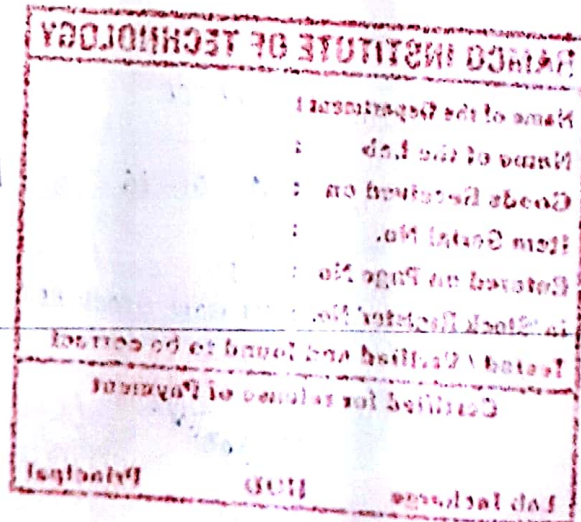 RAMCO INSTITUTE OF TECHNOLOGY
Name of the Department :
Name of the Lab :
Goods Received on :
Item Serial No. :
Entered on Page No :
in Stock Register No. :
Tested / Verified and found to be correct
Certified for release of Payment
Lab Incharge HOD Principal